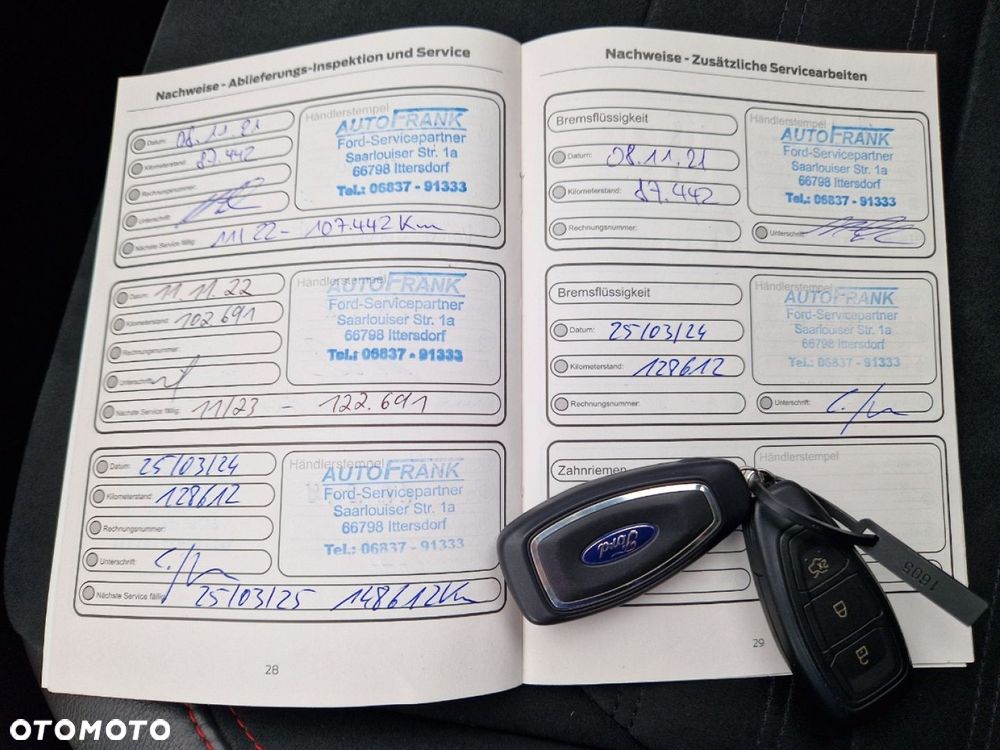 Nachweise - Ablieferungs-Inspektion und Service
Datum: 08.11.21
Kilometerstand: 87.442
Rechnungsnummer:
Unterschrift:
Nächste Service fällig: 11/22 - 107.442 Km
Händlerstempel
AUTO FRANK
Ford-Servicepartner
Saarlouiser Str. 1a
66798 Ittersdorf
Tel.: 06837 - 91333
Datum: 11.11.22
Kilometerstand: 102.691
Rechnungsnummer:
Unterschrift:
Nächste Service fällig: 11/23 - 122.691
Händlerstempel
AUTO FRANK
Ford-Servicepartner
Saarlouiser Str. 1a
66798 Ittersdorf
Tel.: 06837 - 91333
Datum: 25/03/24
Kilometerstand: 128612
Rechnungsnummer:
Unterschrift:
Nächste Service fällig: 25/03/25 148612 Km
Händlerstempel
AUTO FRANK
Ford-Servicepartner
Saarlouiser Str. 1a
66798 Ittersdorf
Tel.: 06837 - 91333
28
Nachweise - Zusätzliche Servicearbeiten
Bremsflüssigkeit
Datum: 08.11.21
Kilometerstand: 87.442
Rechnungsnummer:
Händlerstempel
AUTO FRANK
Ford-Servicepartner
Saarlouiser Str. 1a
66798 Ittersdorf
Tel.: 06837 - 91333
Unterschrift:
Bremsflüssigkeit
Datum: 25/03/24
Kilometerstand: 128612
Rechnungsnummer:
Händlerstempel
AUTO FRANK
Ford-Servicepartner
Saarlouiser Str. 1a
66798 Ittersdorf
Tel.: 06837 - 91333
Unterschrift:
Zahnriemen
Händlerstempel
29
Ford
1605
OTOMOTO